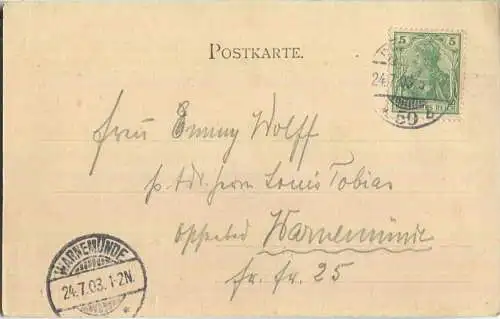 POSTKARTE.
5 5
24.7.03
50 b
Frau Emmy Wolff
p. Adr. Herrn Louis Tobias
Warnemünde
Fr. Fr. 25
WARNEMÜNDE
24.7.03.1-2N.
*